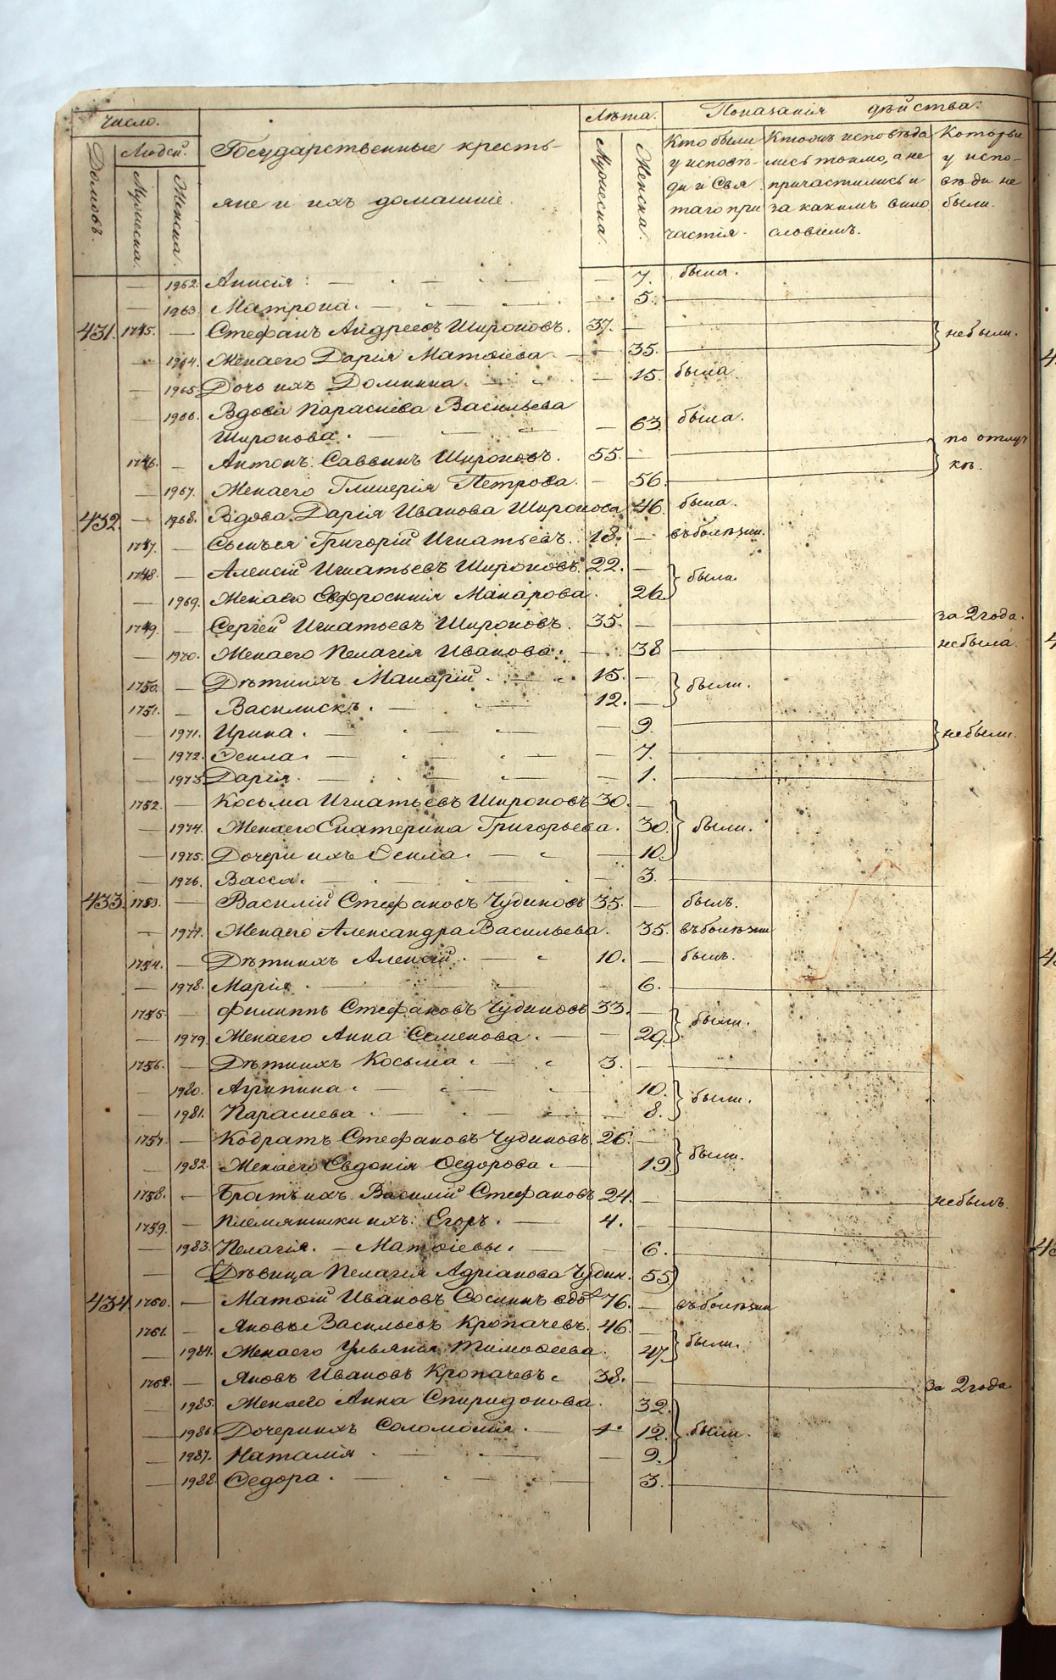 Число. Лѣта. Показанія дѣйства.
Домовъ. Людей. Мужеска. Женска. Государственные кресть-
яне и ихъ домашніе.
Мужеска. Женска.
Кто были у исповѣ-ди и Свя таго при частія.
Кто онъ исповѣда лись токмо, а не причастились и за какимъ вино словіемъ.
Которы у испо-вѣди не были.
— 1962. Анисія. — 7. была.
— 1963. Матрона. — 5.
431. 1745. — Стефанъ Андреевъ Широковъ. 37. — } небыли.
— 1964. Жена его Дарія Матѳіева — 35.
— 1965. Дочь ихъ Домника. — 15. была.
1966. Вдова Параскева Васильева
Широкова. — 63. была.
1746. — Антонъ Саввинъ Широковъ. 55. — } по отлуч
кѣ.
— 1967. Жена его Гликерія Петрова. — 56.
432. — 1968. Вдова Дарія Иванова Широкова 46. была.
1747. — Сынъ ея Григорій Игнатьевъ. 18. — въ болѣзни.
1748. — Алексій Игнатьевъ Широковъ. 22. — } были.
— 1969. Жена его Евфросинія Макарова. 26.
1749. — Сергей Игнатьевъ Широковъ. 35. — за 2 года.
— 1970. Жена его Пелагія Иванова. — 38 небыла
1750. — Дѣти ихъ Макарій. 15. — } были.
1751. — Василискъ. 12. —
— 1971. Ирина. — 9. } небыли.
— 1972. Ѳекла. — 7.
— 1973. Дарія. — 1.
1752. — Косьма Игнатьевъ Широковъ 30. — } были.
— 1974. Жена его Екатерина Григорьева. 30.
— 1975. Дочери ихъ Ѳекла. — 10.
— 1976. Васса. — 3.
433. 1753. — Василій Стефановъ Чудиновъ 35. — былъ.
— 1977. Жена его Александра Васильева. 35. въ болѣзни
1754. — Дѣти ихъ Алексій. 10. — былъ.
— 1978. Марія. 6.
1755. — Филиппъ Стефановъ Чудиновъ 33. — } были.
— 1979. Жена его Анна Семенова. — 29.
1756. — Дѣти ихъ Косьма. 3. —
— 1980. Агрипина. 10. } были.
— 1981. Параскева. — 8.
1757. — Кодратъ Стефановъ Чудиновъ. 26. — } были.
— 1982. Жена его Евдокія Ѳедорова. — 19
1758. — Братъ ихъ Василій Стефановъ 24. — небылъ.
1759. — Племянники ихъ: Егоръ. 4. —
— 1983. Пелагія. — Матѳіевы. — 6.
— Дѣвица Пелагія Адріанова Чудин. 55
434. 1760. — Матѳій Ивановъ Сосинъ вдов 76. — въ болѣзни
1761. — Яковъ Васильевъ Кропачевъ. 46. — } были.
— 1984. Жена его Ульянія Тимоѳеева. 47.
1762. — Яковъ Ивановъ Кропачевъ. 38. — за 2 года
— 1985. Жена его Анна Спиридонова. 32. } были.
— 1986. Дочери ихъ Соломонія. 12.
— 1987. Наталія — 9.
— 1988. Ѳедора. — 3.